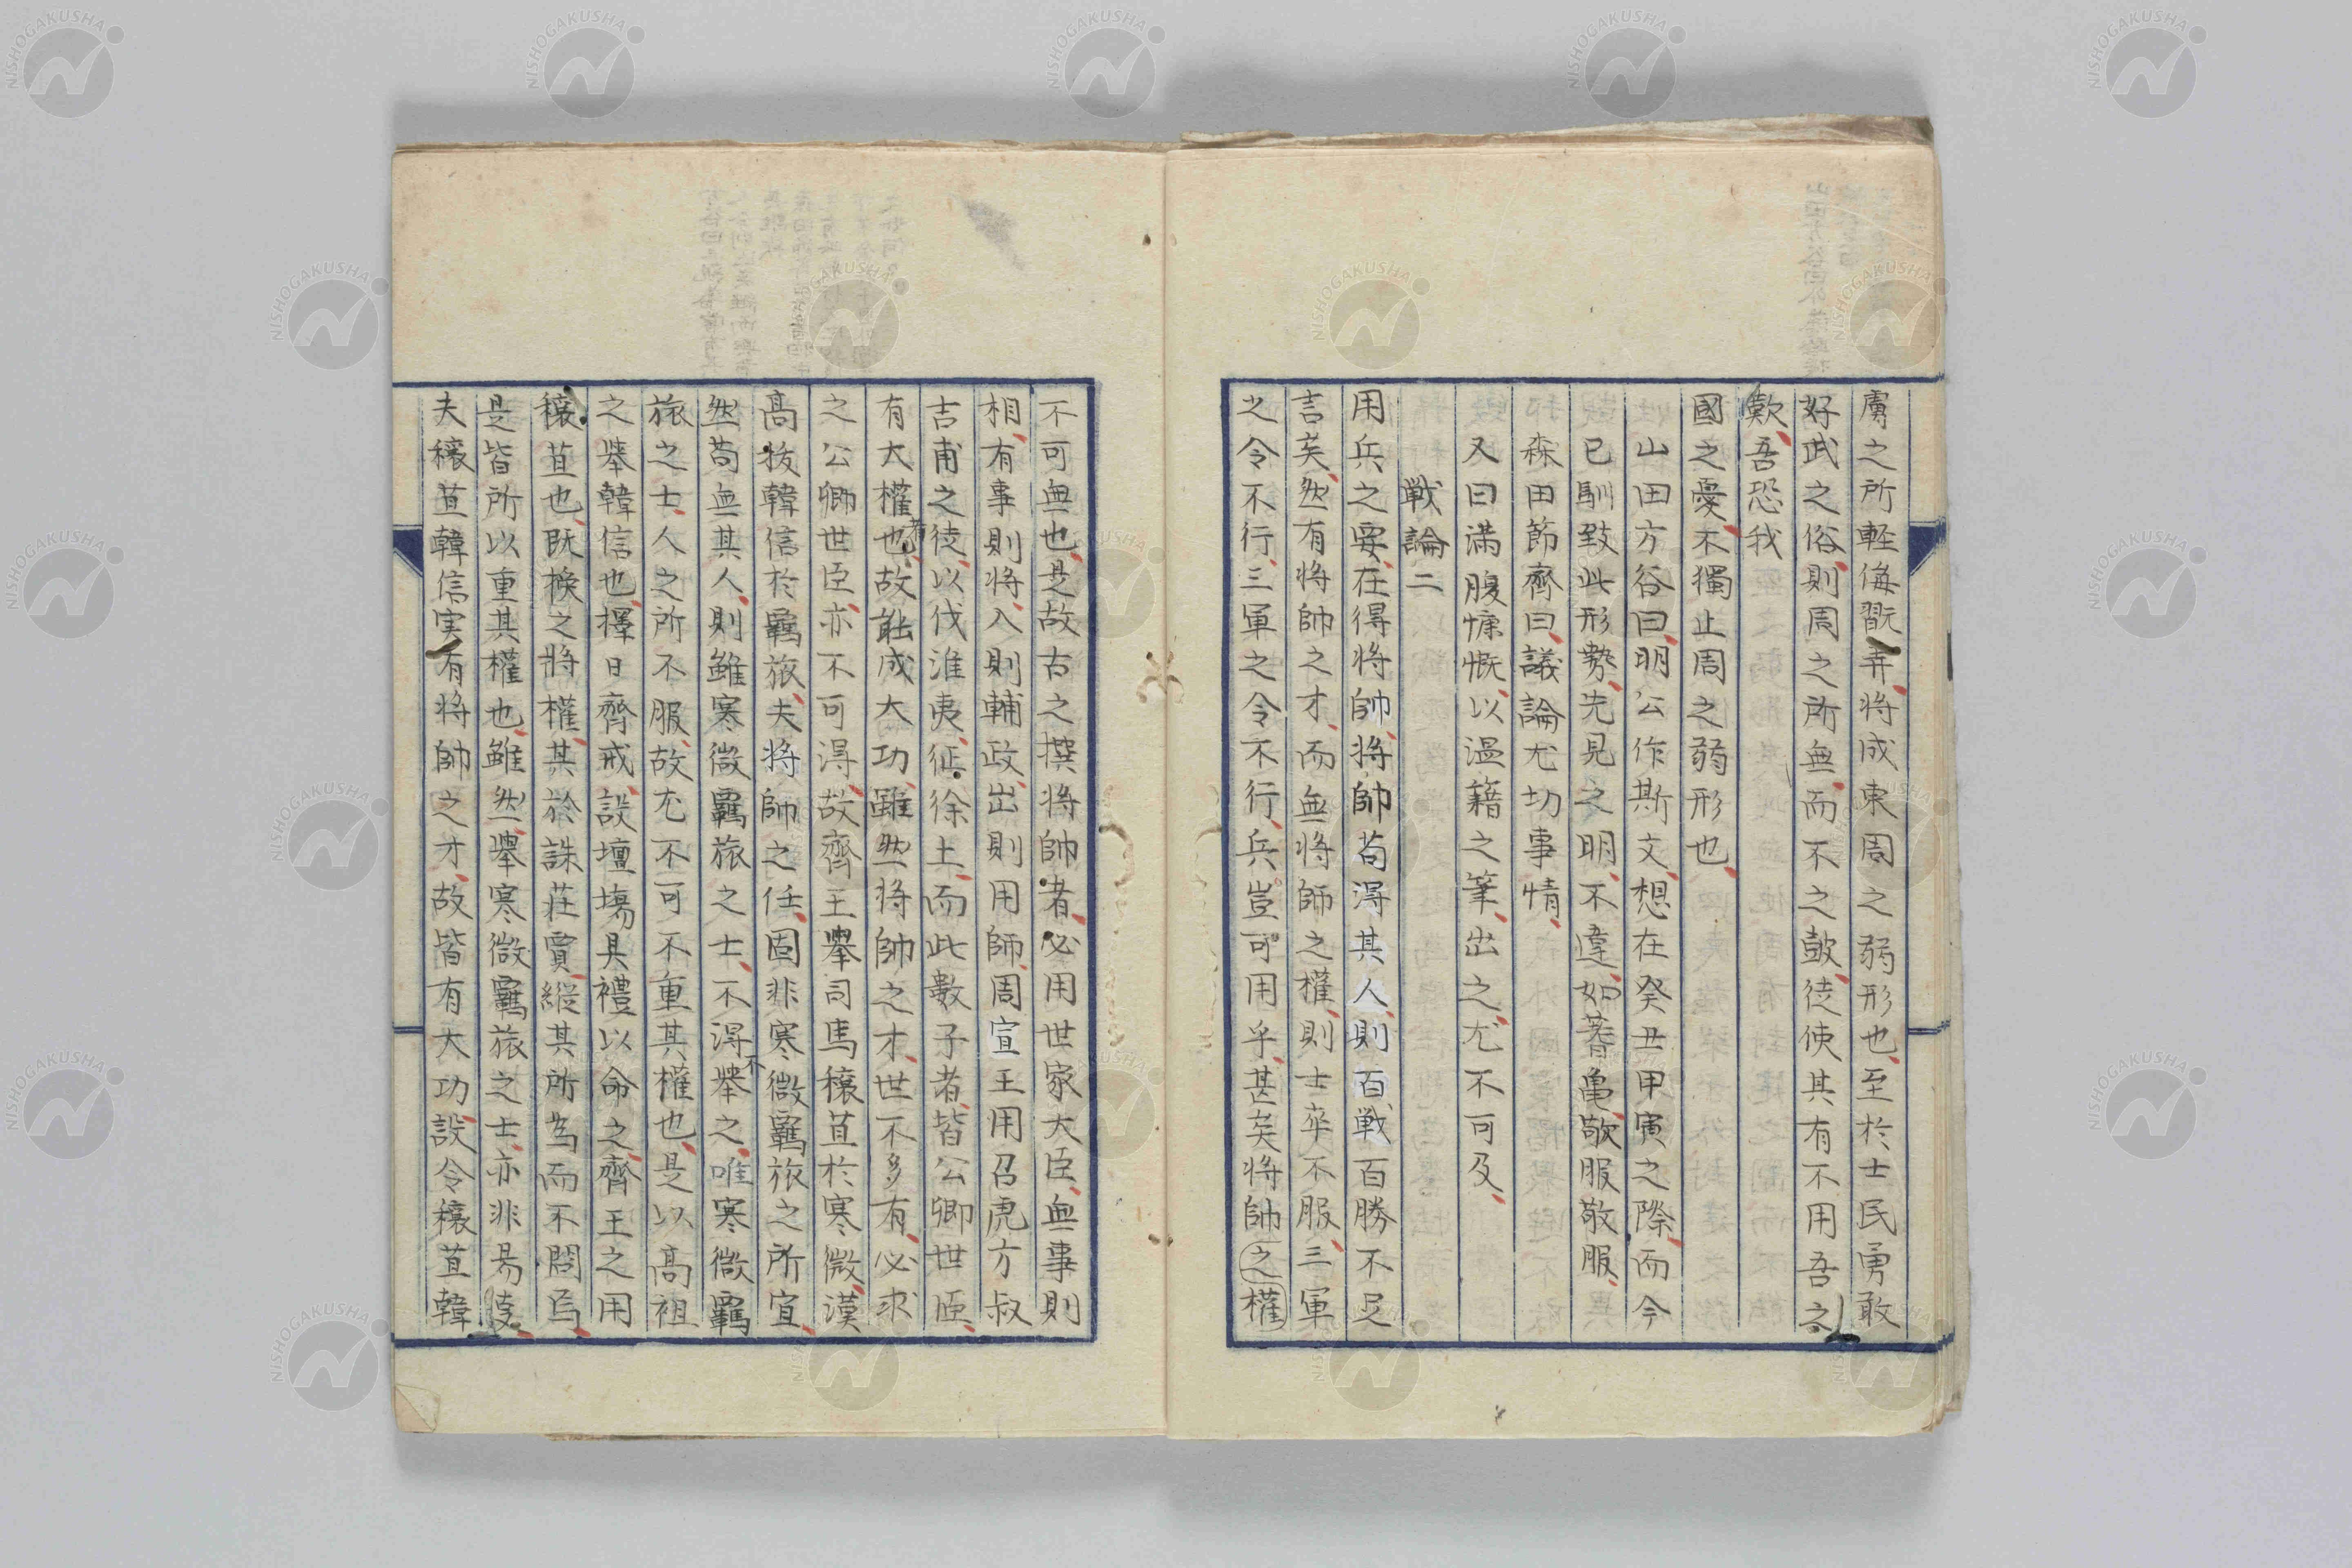 虜之所軽侮翫弄将成東周之弱形也至於士民勇敢
好武之俗則周之所無而不之鼓徒使其有不用吾之
歎吾恐我
國之憂不獨止周之弱形也
山田方谷曰明公作斯文想在癸丑甲寅之際而今
已馴致此形勢先見之明不違如蓍亀敬服敬服
森田節齊曰議論尤切事情
又曰満腹慷慨以温籍之筆出之尤不可及
戦論二
用兵之要在得将帥将帥苟得其人則百戦百勝不足
言矣然有将帥之才而無将師之權則士卒不服三軍
之令不行三軍之令不行兵豈可用乎甚矣将帥之權
不可無也是故古之撰将帥者必用世家大臣無事則
相有事則将入則輔政出則用師周宣王用召虎方叔
吉甫之徒以伐淮夷征徐土而此數子者皆公卿世臣
有大權也者故能成大功雖然将帥之才世不多有必求
之公卿世臣亦不可得故齊王擧司馬穰苴於寒微漢
高抜韓信於羈旅夫将帥之任固非寒微羈旅之所宜
然苟無其人則雖寒微羈旅之士不得不擧之唯寒微羈
旅之士人之所不服故尤不可不重其權也是以高祖
之擧韓信也擇日齊戒設壇場具禮以命之齊王之用
穰苴也既假之將權其於誅荘賈縦其所為而不問焉
是皆所以重其權也雖然擧寒微羈旅之士亦非易
夫穰苴韓信実有将帥之才故皆有大功設令穰苴韓
NISHOGAKUSHA